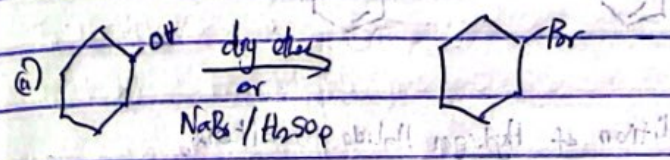 a) OH dry ether Br
or
NaBr / H₂SO₄